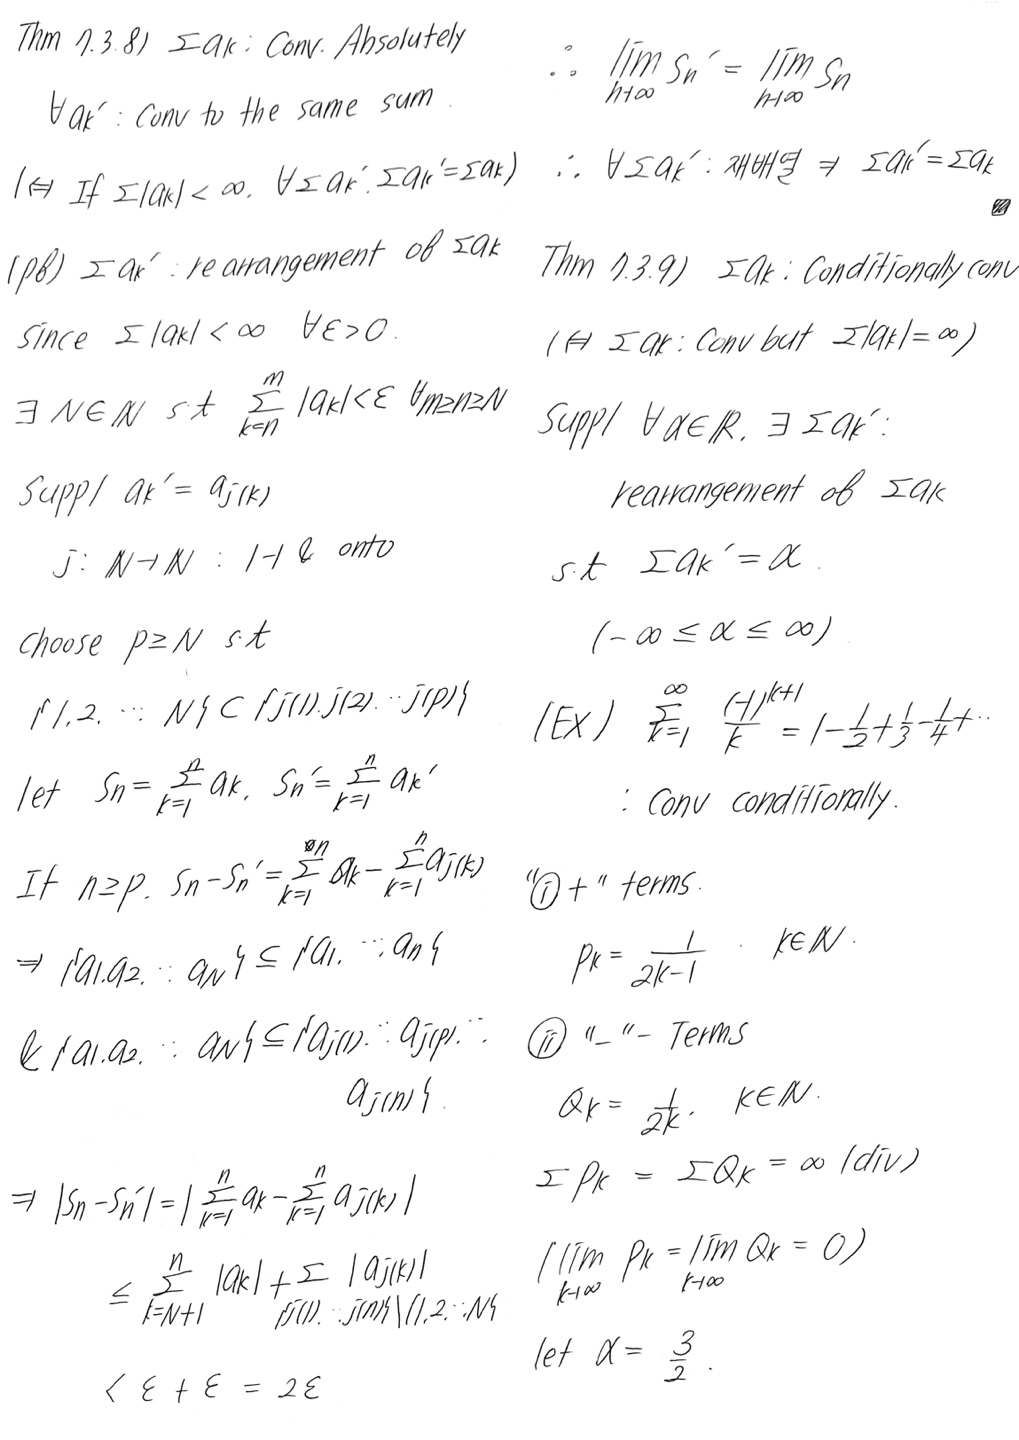 Thm 7.3.8) Σak : Conv. Absolutely
∀ak′ : Conv to the same sum.
(⇔ If Σ|ak| < ∞, ∀Σak′. Σak′ = Σak)
(pf) Σak′ : rearrangement of Σak
Since Σ|ak| < ∞ ∀ε>0.
∃ N∈ℕ s.t Σ_{k=n}^{m} |ak| < ε ∀m≥n≥N
Supp/ ak′ = aj(k)
j: ℕ→ℕ : 1-1 & onto
choose p≥N s.t
{1.2. ⋯ N} ⊂ {j(1).j(2). ⋯ j(p)}
let Sn = Σ_{k=1}^{n} ak. Sn′ = Σ_{k=1}^{n} ak′
If n≥p. Sn-Sn′ = Σ_{k=1}^{n} ak - Σ_{k=1}^{n} aj(k)
⇒ {a1.a2. ⋯ aN} ⊆ {a1. ⋯ an}
& {a1.a2. ⋯ aN} ⊆ {aj(1). ⋯ aj(p). ⋯
aj(n)}.
⇒ |Sn-Sn′| = |Σ_{k=1}^{n} ak - Σ_{k=1}^{n} aj(k)|
≤ Σ_{k=N+1}^{n} |ak| + Σ_{{j(1). ⋯ j(n)}\{1.2. ⋯ N}} |aj(k)|
< ε + ε = 2ε
∴ lim_{n→∞} Sn′ = lim_{n→∞} Sn
∴ ∀Σak′ : 재배열 ⇒ Σak′ = Σak
Thm 7.3.9) Σak : Conditionally conv
(⇔ Σak : Conv but Σ|ak| = ∞)
Supp/ ∀α∈ℝ. ∃Σak′ :
rearrangement of Σak
s.t Σak′ = α.
(-∞ ≤ α ≤ ∞)
(Ex) Σ_{k=1}^{∞} (-1)^{k+1}/k = 1 - 1/2 + 1/3 - 1/4 + ⋯
: Conv conditionally.
"ⓘ +" terms.
Pk = 1/(2k-1) . k∈ℕ.
ⓘⓘ "-"- Terms
Qk = 1/2k. k∈ℕ.
ΣPk = ΣQk = ∞ (div)
(lim_{k→∞} Pk = lim_{k→∞} Qk = 0)
let α = 3/2.